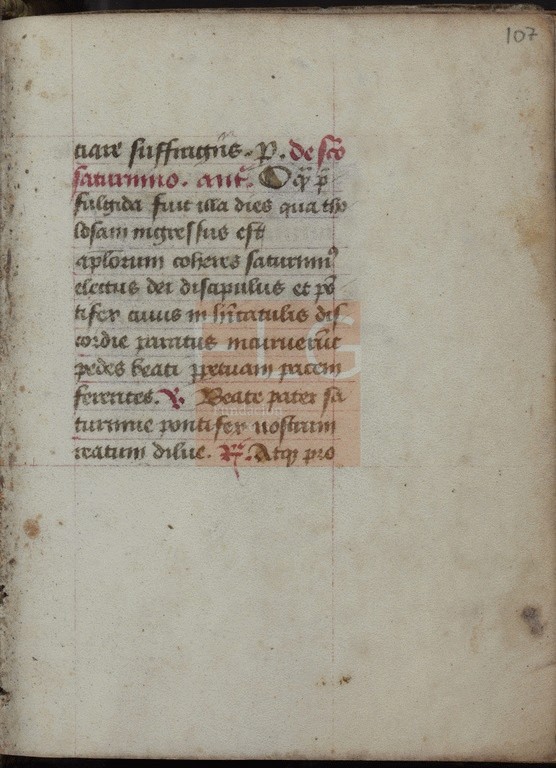 107
ciare suffragiis. P. de scõ
saturnino. ant. O q̃ p̃
fulgida fuit illa dies qua tho
losam ingressus est
aplorum coheres saturninꝰ
electus dei discipulus et põ
tifex cuius in
cordie paratus incuruerũt
pedes beati ꝑpetuam pacem
ferentes. V. Beate pater sa
turnine pontifex nostrum
reatum dilue. R. Atqꝫ pro
FLG